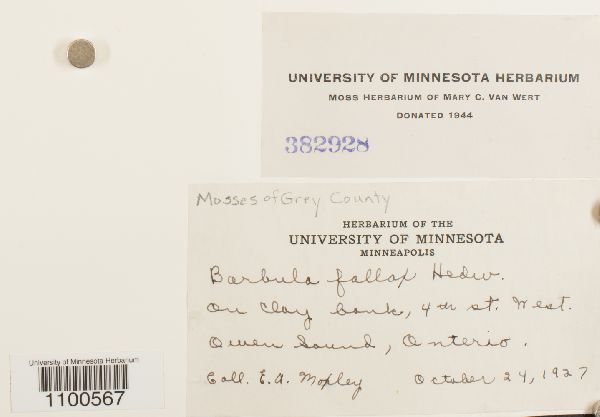 UNIVERSITY OF MINNESOTA HERBARIUM
MOSS HERBARIUM OF MARY C. VAN WERT
DONATED 1944
382928
Mosses of Grey County
HERBARIUM OF THE
UNIVERSITY OF MINNESOTA
MINNEAPOLIS
Barbula fallax Hedw.
On clay bank, 4th st. West.
Owen Sound, Onterio.
Coll. E. A. Moxley October 24, 1927
University of Minnesota Herbarium
1100567